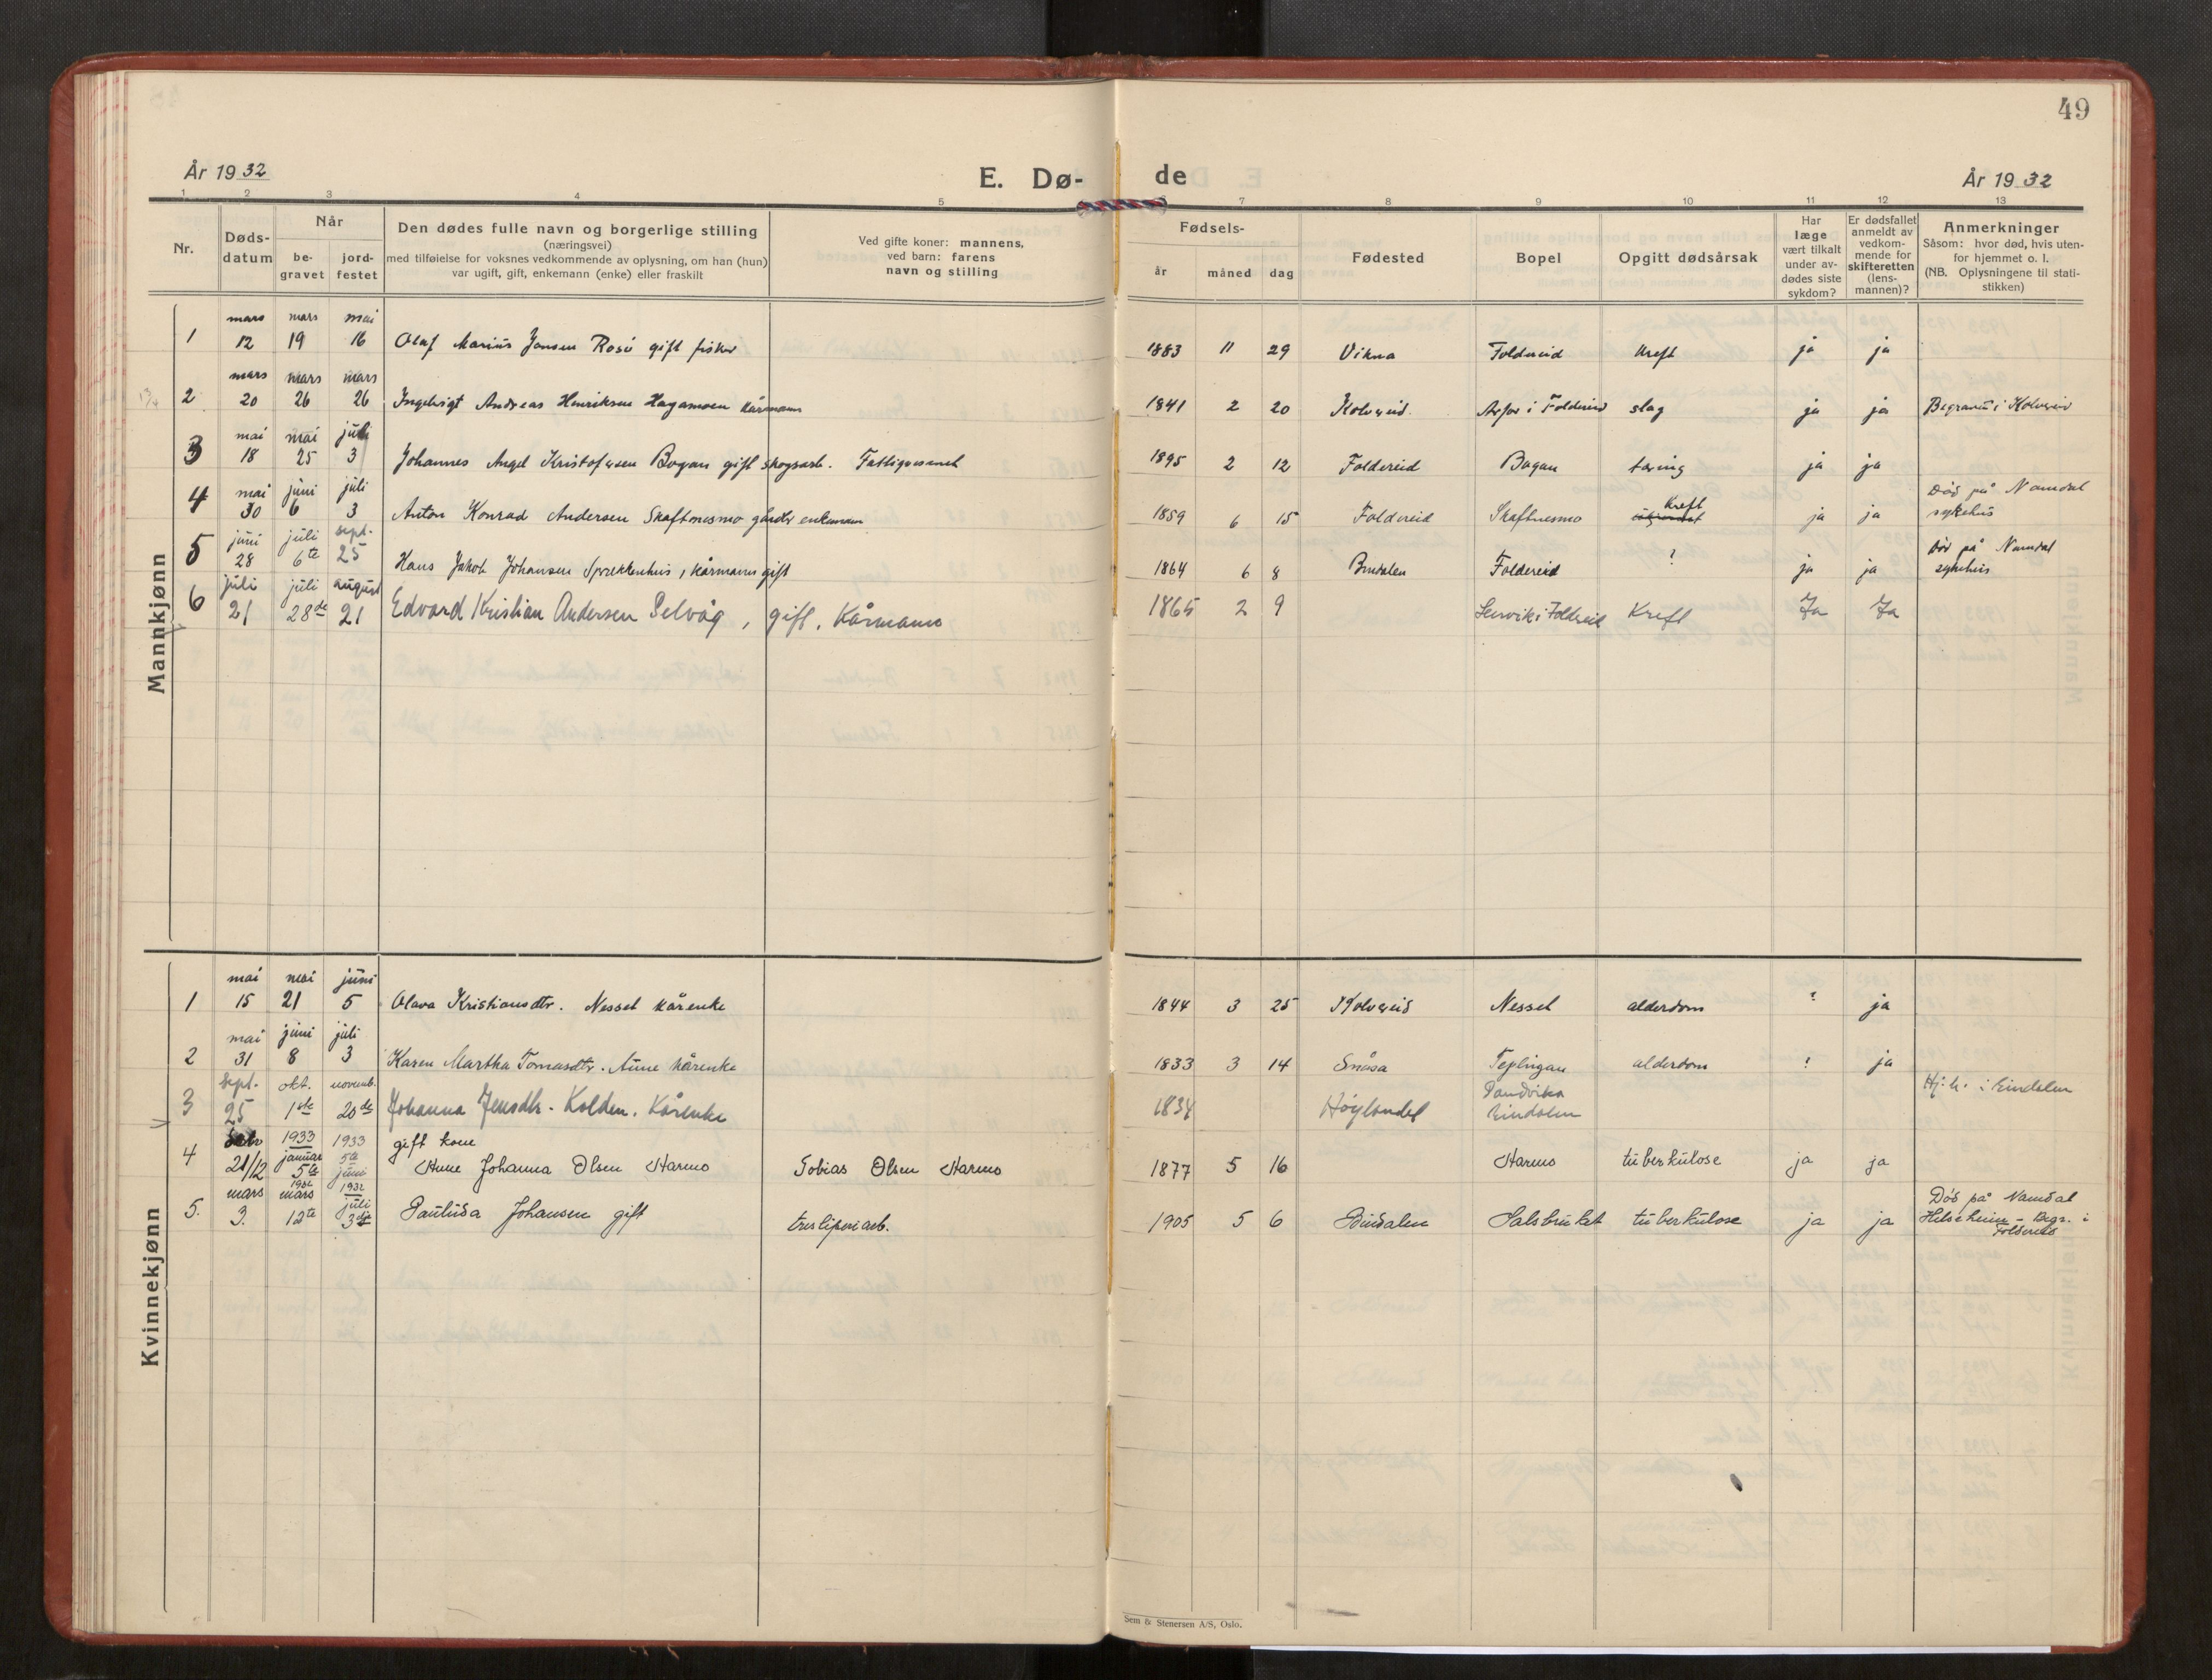 49
År 1932
E. Dø-
de
År 1932
1 2 3 4 5 6 7 8 9 10 11 12 13
Nr.
Døds-
datum
Når
be-
gravet
jord-
festet
Den dødes fulle navn og borgerlige stilling
(næringsvei)
med tilføielse for voksnes vedkommende av oplysning, om han (hun)
var ugift, gift, enkemann (enke) eller fraskilt
Ved gifte koner: mannens,
ved barn: farens
navn og stilling
Fødsels-
år måned dag
Fødested
Bopel
Opgitt dødsårsak
Har
læge
vært tilkalt
under av-
dødes siste
sykdom?
Er dødsfallet
anmeldt av
vedkom-
mende for
skifteretten
(lens-
mannen)?
Anmerkninger
Såsom: hvor død, hvis uten-
for hjemmet o. l.
(NB. Oplysningene til stati-
stikken)
Mannkjønn
mars mars mai
1 12 19 16 Olaf Marius Jensen Rosö gift fisker 1883 11 29 Vikna Foldereid Kreft ja ja
mars mars mars
2 20 26 26 Ingebrigt Andreas Henriksen Hagamoen kårmann 1841 2 20 Kolvereid Arfor i Foldereid slag ja ja Begravet i Kolvereid
mai mai juli
3 18 25 3 Johannes Angel Kristofersen Bogan gift skogsarb. Fattigvesenet 1895 2 12 Foldereid Bogan tæring ja ja
mai juni juli Kreft Död på Namdal
4 30 6 3 Anton Konrad Andersen Skaftnesmo gårdbr enkemann 1859 6 15 Foldereid Skaftnesmo ja ja sykehus
juni juli sept. Död på Namdal
5 28 6te 25 Hans Jakob Johansen Sprekkenhus, kårmann gift 1864 6 8 Bindalen Foldereid ? ja ja sykehus
juli juli august
6 21 28de 21 Edvard Kristian Andersen Selvåg, gift, Kårmann 1865 2 9 i Foldreid Kreft Ja Ja
Kvinnekjønn
mai mai juni
1 15 21 5 Olava Kristiansdtr. Nesset kårenke 1844 3 25 Kolvereid Nesset alderdom ? ja
mai juni juli
2 31 8 3 Karen Martha Tomasdtr. Aune kårenke 1833 3 14 Snåsa Teplingan alderdom ? ja
sept. okt. novemb. Sandvika Hj.h. i Bindalen
3 25 1ste 20de Johanna Jensdtr. Kolden. Kårenke 1834 Höylandet Bindalen
1933 1933 gift kone
4 21/12 januar 5te 5te juni Anne Johanna Olsen Harmo Tobias Olsen Harmo 1877 5 16 Harmo tuberkulose ja ja
mars mars 1932 1932 juli Död på Namdal
5. 3. 12te 3dje Paulida Johansen gift tresliperiarb. 1905 5 6 Bindalen Salsbruket tuberkulose ja ja Helseheim - Begr. i
Foldereid
Sem & Stenersen A/S, Oslo.